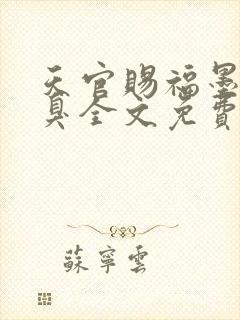 天官賜福墨
臭全文免費
蘇寧雲